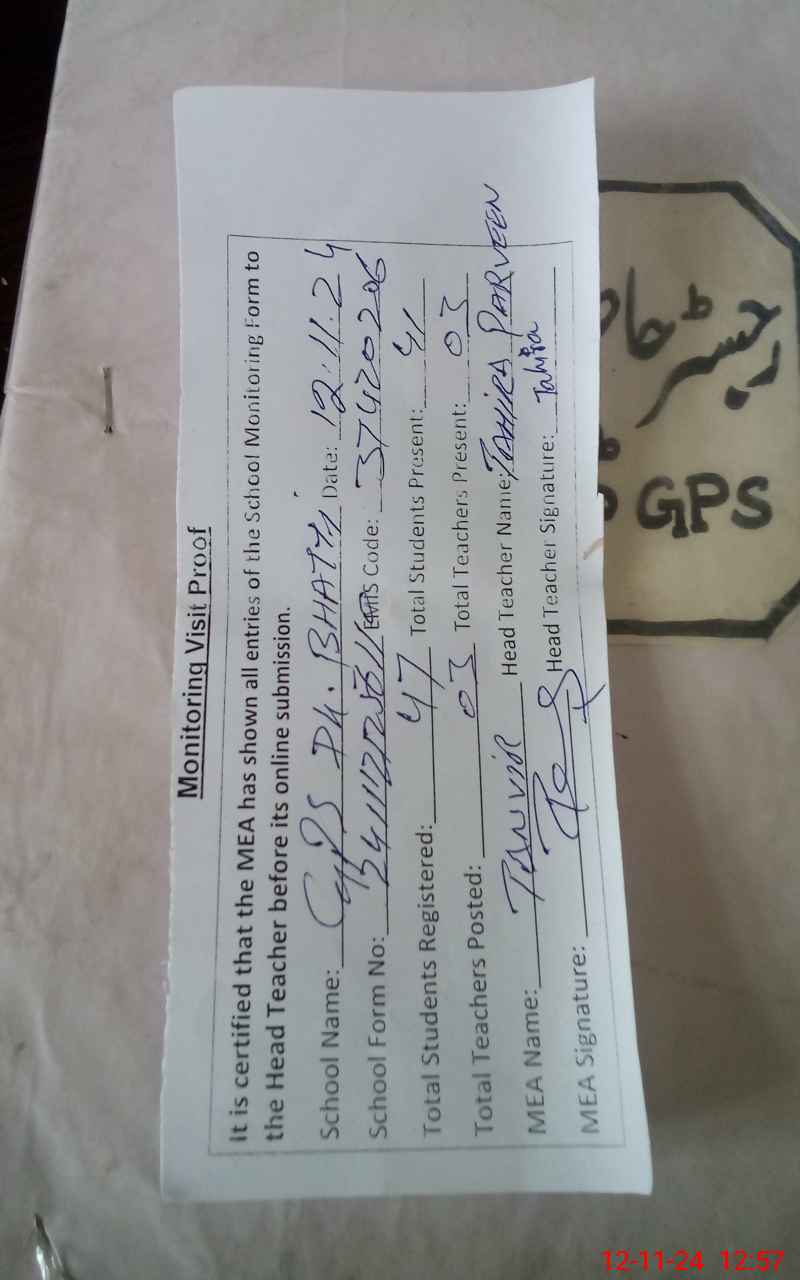 Monitoring Visit Proof
It is certified that the MEA has shown all entries of the School Monitoring Form to
the Head Teacher before its online submission.
School Name: GPS Dh. BHATTI Date: 12.11.24
School Form No: EMIS Code: 37420206
Total Students Registered: 47 Total Students Present: 41
Total Teachers Posted: 03 Total Teachers Present: 03
MEA Name: TANVIR Head Teacher Name: TAHIRA PARVEEN
MEA Signature: Head Teacher Signature: Tahira
رجسٹر
GPS
12-11-24 12:57